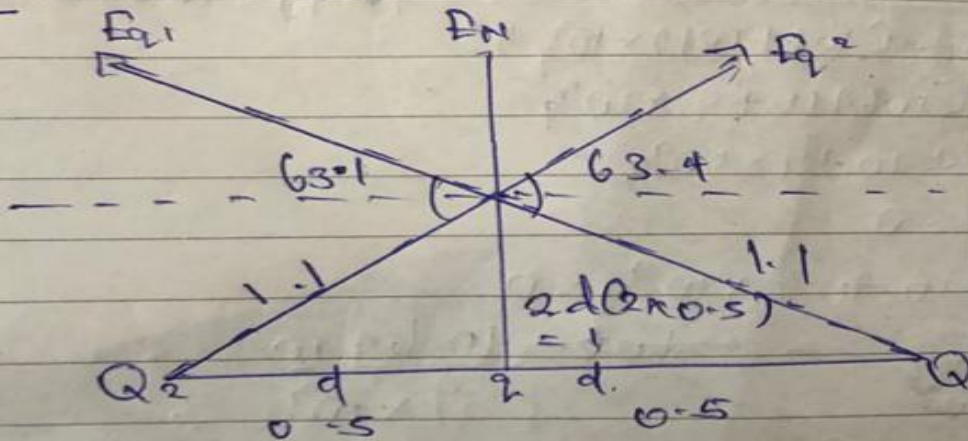 Eq1 EN Eq2
63.1 63.4
1.1 1.1
2d(2x0.5)
= 1
Q2 d q d. Q
0.5 0.5